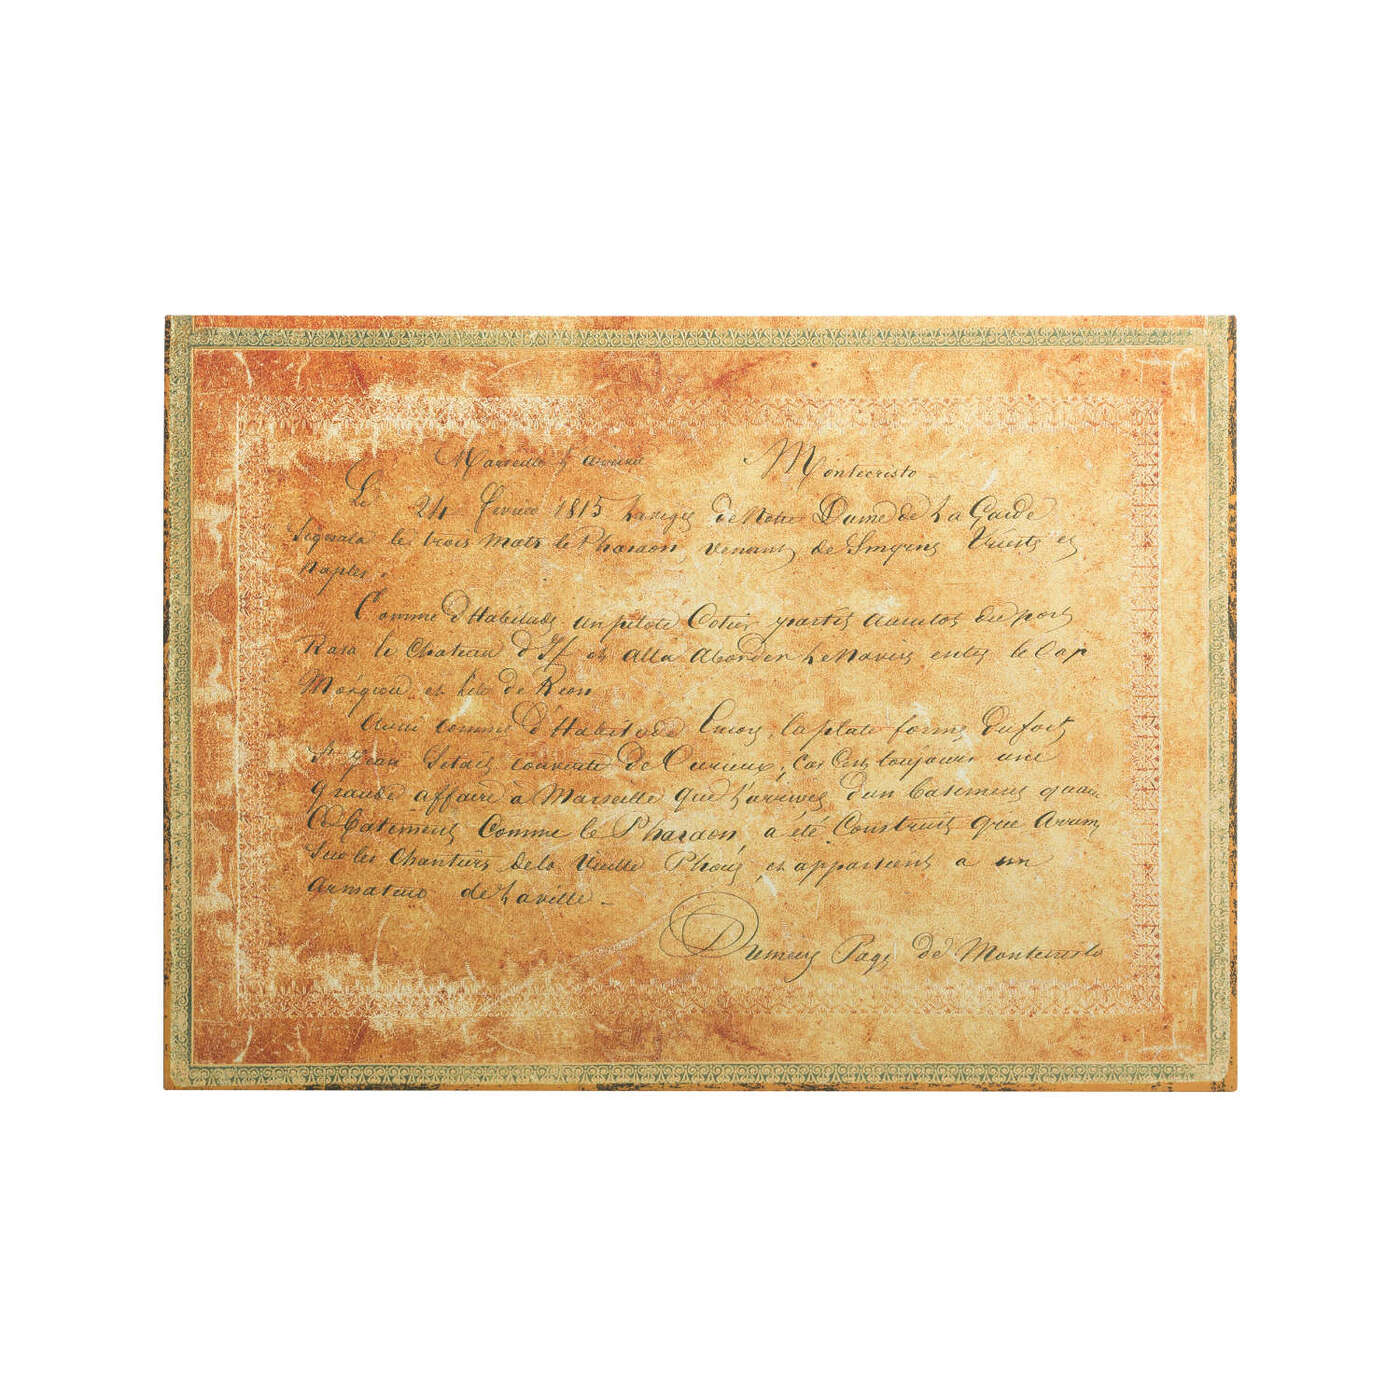 Marseille L'arrivée Montecristo
Le 24 fevrier 1815 La vigie de Notre Dame de La Garde
Signala le trois mats le Pharaon, venant de Smyrne Trieste et
Naples.
Comme d'Habitude un pilote Cotier partit aussitot du port
Rasa le Chateau d'If et alla aborder Le Navire entre le Cap
Morgiou et l'ile de Rion
Aussi comme d'Habitude encore, la plate forme du fort
St Jean s'etait couverte de Curieux; Car C'est toujours une
grande affaire à Marseille que L'arrivée d'un batiment quand
Ce batiment Comme le Pharaon, a été Construit
Sur les Chantiers de la Vieille Phocée, et appartient a un
armateur de La ville –
Dumas Page de Montecristo